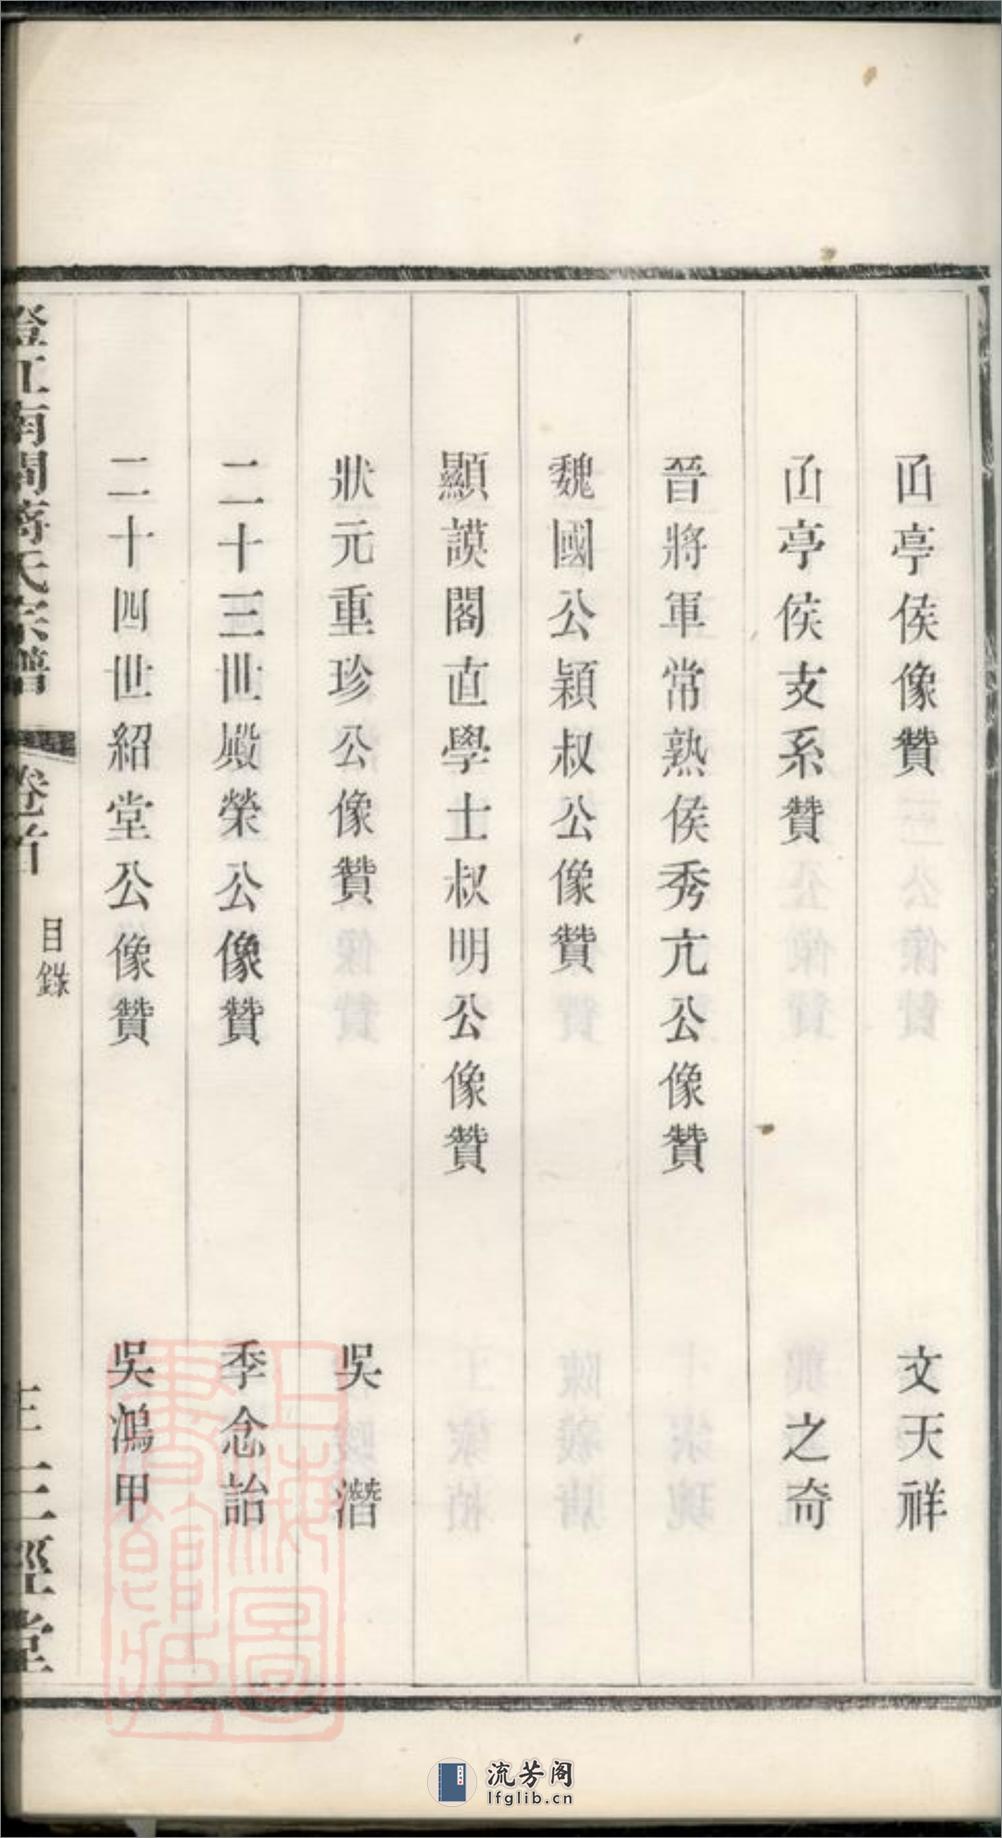 函亭侯像贊 文天祥
函亭侯支系贊 之奇
晉將軍常熟侯秀亢公像贊
魏國公穎叔公像贊
顯謨閣直學士叔明公像贊
狀元重珍公像贊 吳潛
二十三世殿榮公像贊 季念詒
二十四世紹堂公像贊 吳鴻甲
澄江南閘蔣氏宗譜 卷首 目錄 三 三徑堂
上海圖書館藏
流芳阁
lfglib.cn